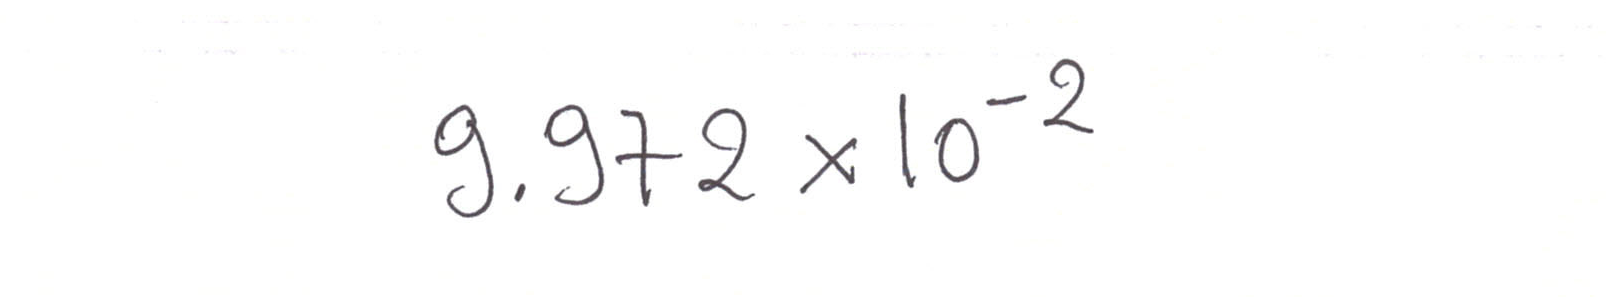 9.972 × 10⁻²